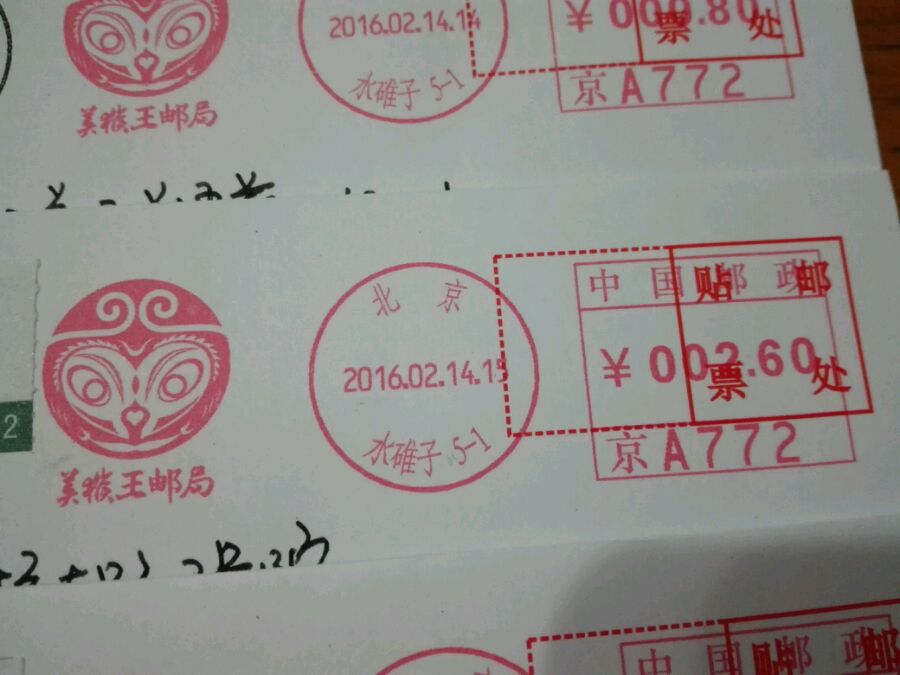 2016.02.14.14
¥ 000.80
票 处
水碓子 5-1
京A772
美猴王邮局
中国邮政
贴 邮
北京
2016.02.14.15
¥ 002.60
票 处
水碓子 5-1
京A772
2
美猴王邮局
中国邮政
贴 邮